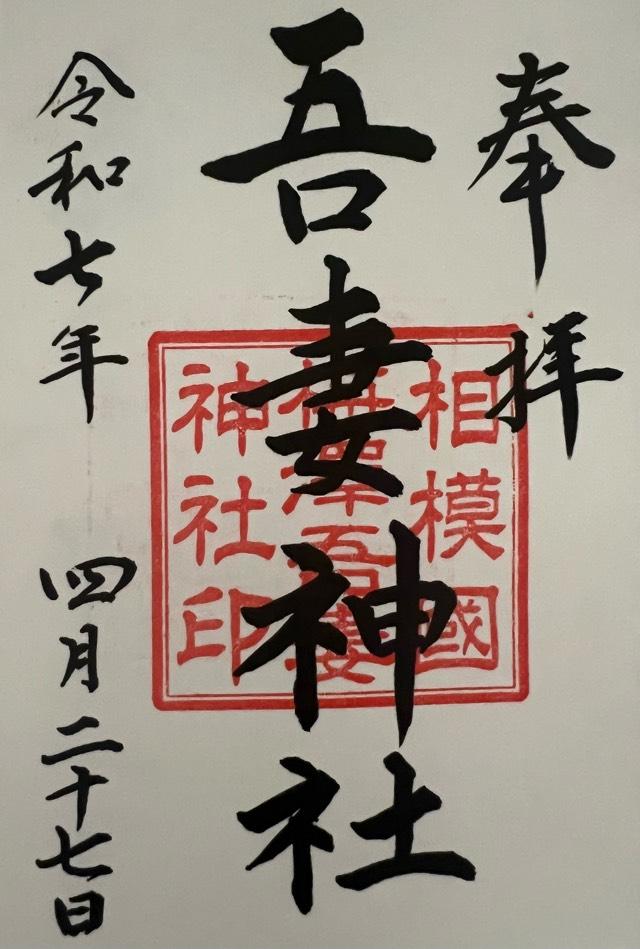 奉拝
吾妻神社
令和七年 四月二十七日
相模國
澤吾妻
神社印